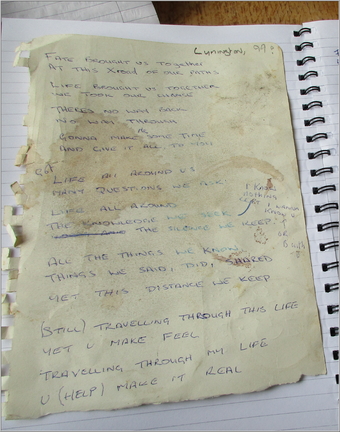 FATE BROUGHT US TOGETHER
AT THIS XROAD OF OUR PATHS
LIFE BROUGHT US TOGETHER
WE TOOK OUR CHANCE
THERES NO WAY BACK
NO WAY THROUGH
GONNA MAKE SOME TIME
AND GIVE IT ALL TO YOU
LIFE ALL AROUND US
MANY QUESTIONS WE ASK
ALL AROUND
THE KNOWLEDGE WE SEEK
THE SILENCE WE KEEP
I KNOW
NOTHING
ALL THE THINGS WE KNOW
THINGS WE SAID, DID, SHARED
YET THIS DISTANCE WE KEEP
(STILL) TRAVELLING THROUGH THIS LIFE
YET U MAKE FEEL
TRAVELLING THROUGH MY LIFE
U (HELP) MAKE IT REAL